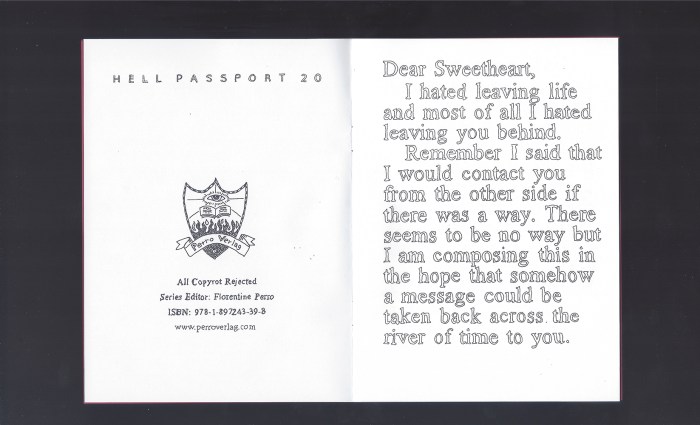 HELL PASSPORT 20
Perro Verlag
All Copyrot Rejected
Series Editor: Florentine Perro
ISBN: 978-1-897243-39-8
www.perroverlag.com
Dear Sweetheart,
I hated leaving life
and most of all I hated
leaving you behind.
Remember I said that
I would contact you
from the other side if
there was a way. There
seems to be no way but
I am composing this in
the hope that somehow
a message could be
taken back across the
river of time to you.